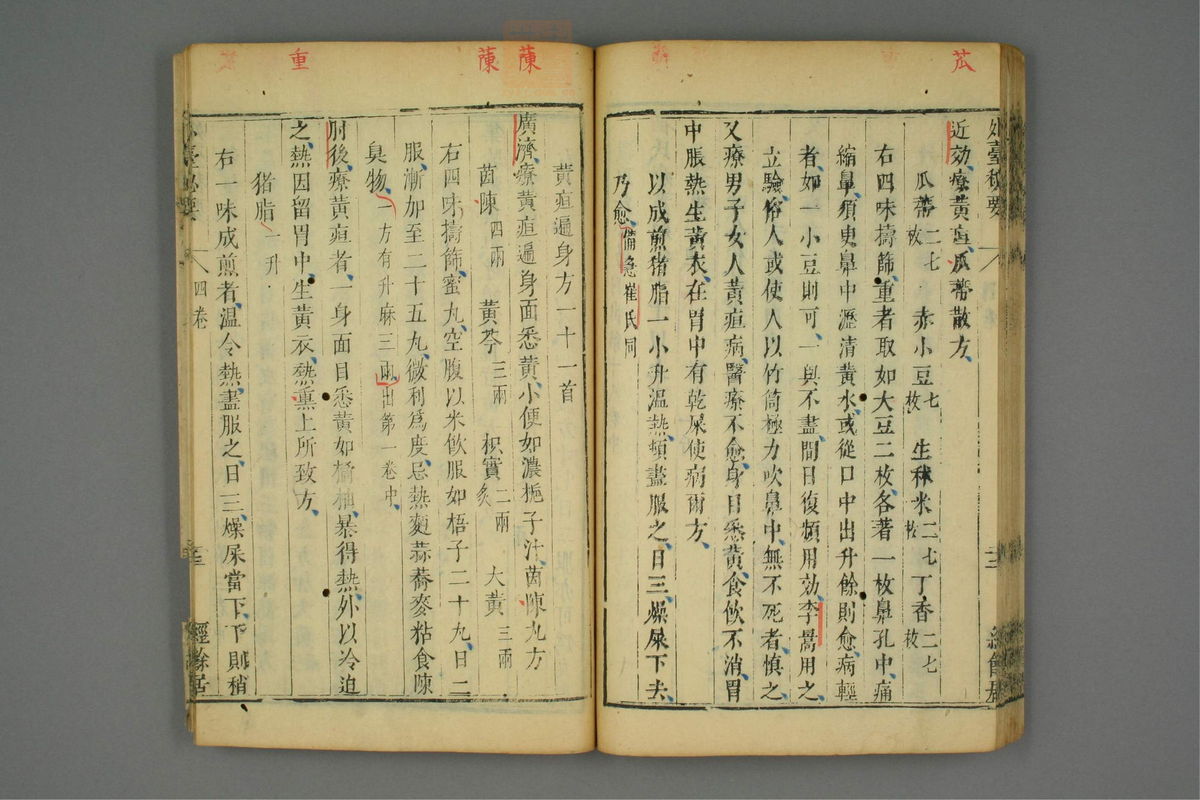 苽
外臺秘要
近効療黃疸瓜蔕散方
瓜蔕二七枚 赤小豆七枚 生秫米二七枚 丁香二七枚
右四味擣篩重者取如大豆二枚各著一枚鼻孔中痛
縮鼻須臾鼻中瀝清黃水或從口中出升餘則愈病輕
者如一小豆則可一與不盡間日復頻用効李暠用之
立驗俗人或使人以竹筒極力吹鼻中無不死者慎之
又療男子女人黃疸病醫療不愈身目悉黃食飲不消胃
中脹熱生黃衣在胃中有乾屎使病爾方
以成煎猪脂一小升溫熱頓盡服之日三燥屎下去
乃愈備急崔氏同
蔯
蔯
重
黃疸遍身方一十一首
廣濟療黃疸遍身面悉黃小便如濃梔子汁茵陳丸方
茵陳四兩 黃芩三兩 枳實二兩炙 大黃三兩
右四味擣篩蜜丸空腹以米飲服如梧子二十丸日二
服漸加至二十五丸微利爲度忌熱麵蒜蕎麥粘食陳
臭物一方有升麻三兩出第一卷中
肘後療黃疸者一身面目悉黃如橘柚暴得熱外以冷迫
之熱因留胃中生黃衣熱熏上所致方
猪脂一升
右一味成煎者溫令熱盡服之日三燥屎當下下則稍
外臺秘要 四卷 經餘居